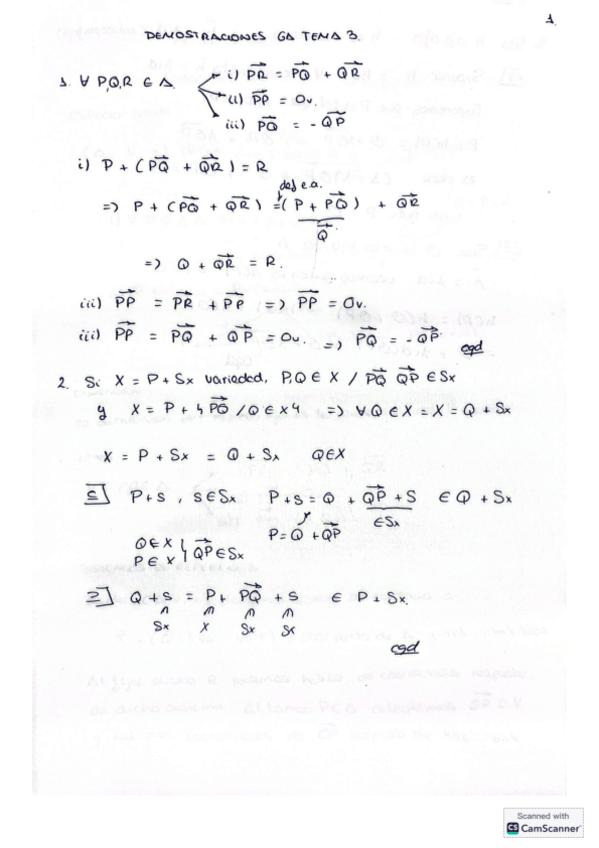 1.
DEMOSTRACIONES GA TEMA 3.
1. ∀ P,Q,R ∈ A. i) PR⃗ = PQ⃗ + QR⃗
ii) PP⃗ = 0v.
iii) PQ⃗ = - QP⃗
i) P + (PQ⃗ + QR⃗) = R
def e.a.
=> P + (PQ⃗ + QR⃗) = (P + PQ⃗) + QR⃗
Q
=> Q + QR⃗ = R.
iii) PP⃗ = PR⃗ + PP⃗ => PP⃗ = 0v.
iii) PP⃗ = PQ⃗ + QP⃗ = 0v. => PQ⃗ = - QP⃗.
cqd
2. Si X = P + Sx variedad, P,Q ∈ X / PQ⃗ QP⃗ ∈ Sx
y X = P + {PQ⃗ / Q ∈ X} => ∀Q ∈ X = X = Q + Sx
X = P + Sx = Q + Sx Q ∈ X
⊆] P + s, s ∈ Sx P + s = Q + QP⃗ + s ∈ Q + Sx
P = Q + QP⃗ ∈ Sx
Q ∈ X
P ∈ X } QP⃗ ∈ Sx
⊇] Q + s = P + PQ⃗ + s ∈ P + Sx.
Sx X Sx Sx
cqd
Scanned with
CS CamScanner